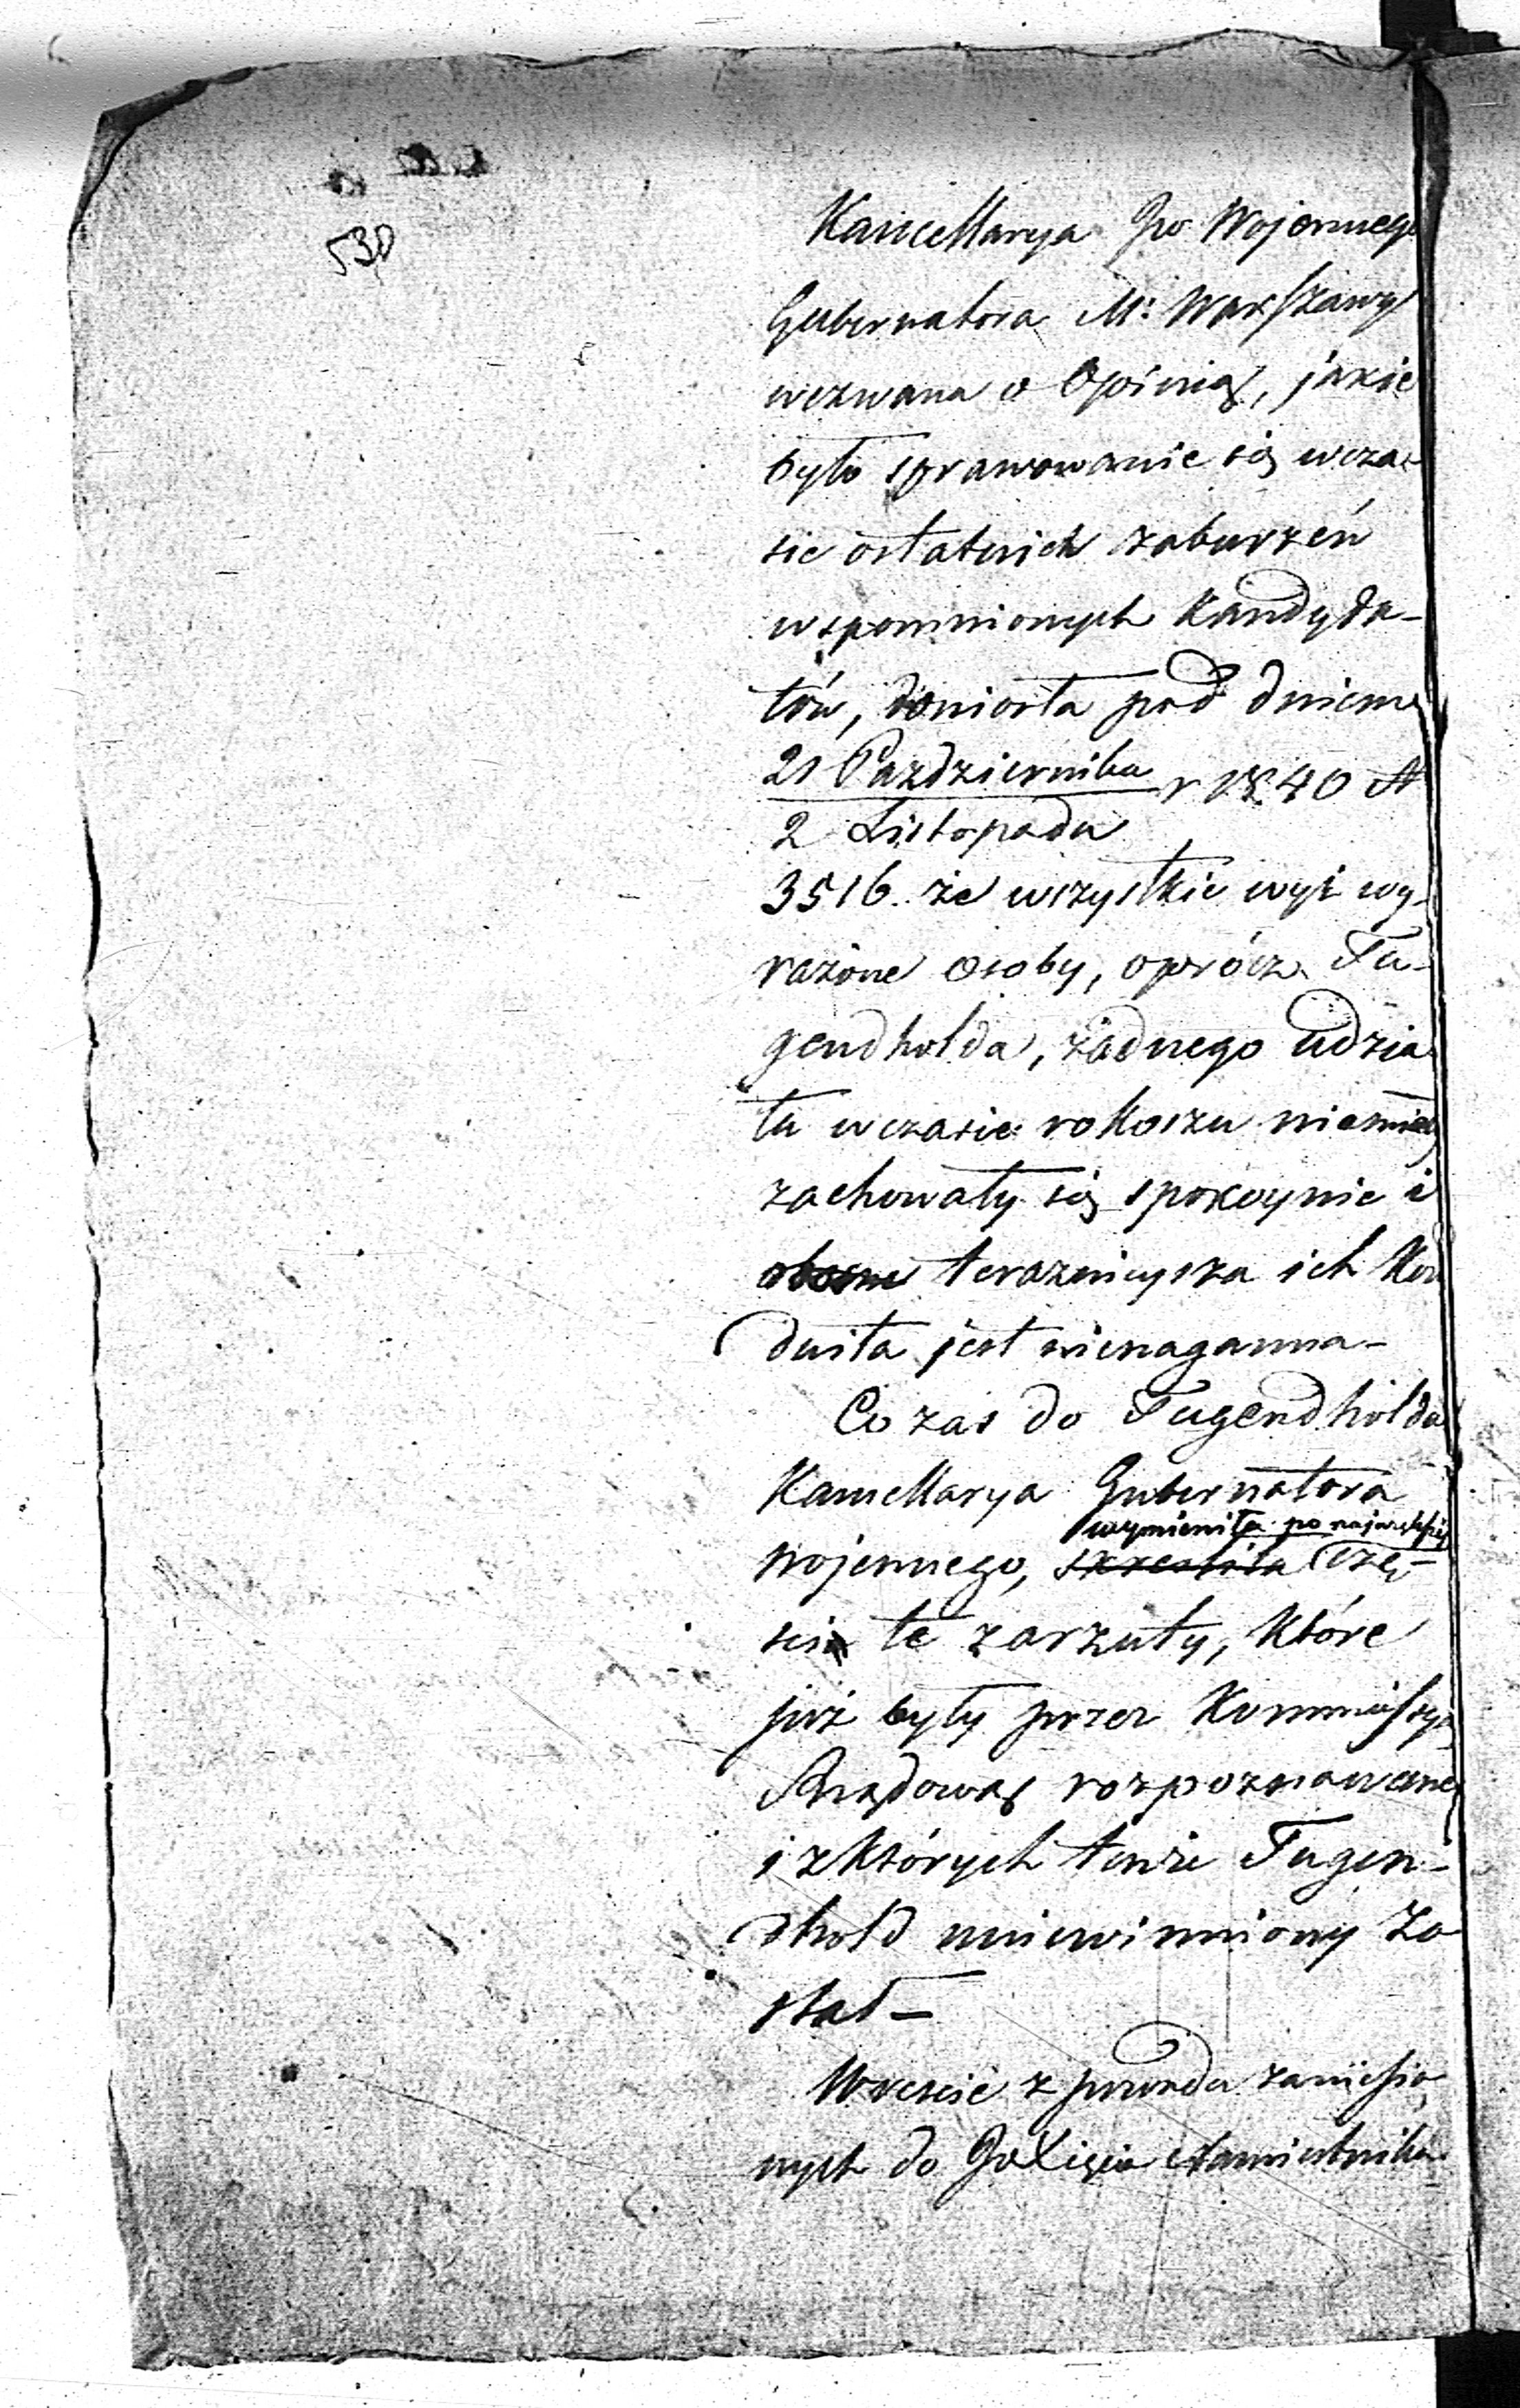 530
Kancellarya Jw Wojennego
Gubernatora M: Warszawy
wezwana o Opinią, jakie
było sprawowanie się wcza-
sie ostatnich zaburzeń
wspomnionych Kandyda-
tów, doniosła pod dniem
21 Października r 1840 N
2 Listopada
3516. że wszystkie wyż wy-
rażone osoby, oprócz Tu-
gendholda, żadnego udzia
łu wczasie rokoszu niemieły
zachowały się spokoynie i
obecne teraznieysza ich Kon
duita jest nienaganna-
Co zas do Tugendholda
Kancellarya Gubernatora
wymieniła po największej
Wojennego, skreśliła częś-
ści te zarzuty, które
już były przez Kommissyą
Rządową rozpoznawane
i zktórych tenże Tugen-
dhold uniewinniony zo
stał-
Wreście z powodu zaniesio
nych do Xięcia Namiestnika